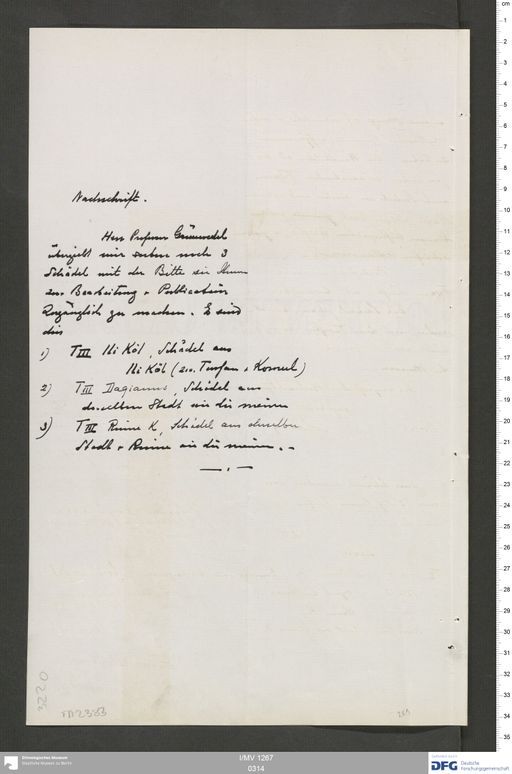 Nachschrift.
Herr Professor Grünwedel
übergiebt mir soeben noch 3
Schädel mit der Bitte sie Ihnen
zur Bearbeitung & Publication
zugänglich zu machen. Es sind
dies
1) TIII Ili Köl, Schädel aus
Ili Köl (zw. Turfan & Komul)
2) TII Dagianus, Schädel aus
derselben Stadt wie die meinen
3) TIII Ruine K, Schädel aus derselben
Stadt & Ruine wie die meinen. –
0220
TA2383
Ethnologisches Museum
Staatliche Museen zu Berlin
I/MV 1267
0314
DFG Deutsche
Forschungsgemeinschaft
cm
1
2
3
4
5
6
7
8
9
10
11
12
13
14
15
16
17
18
19
20
21
22
23
24
25
26
27
28
29
30
31
32
33
34
35